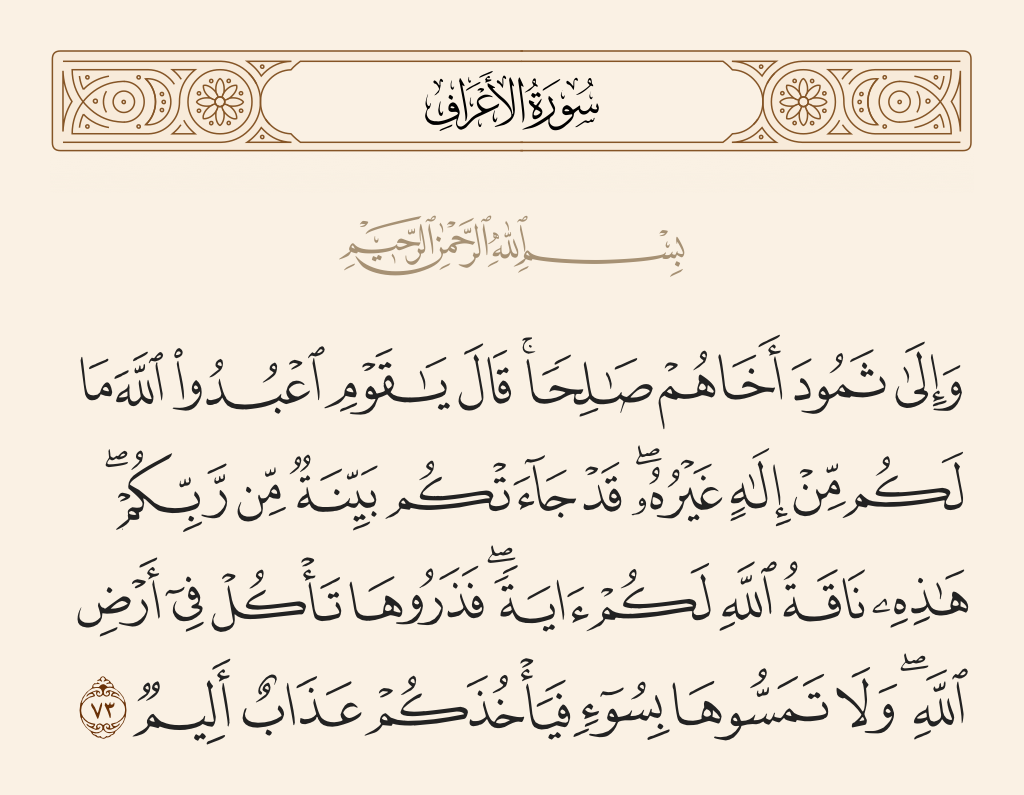 سُورَةُ الأَعْرَافِ
بِسْمِ ٱللَّهِ ٱلرَّحْمَٰنِ ٱلرَّحِيمِ
وَإِلَىٰ ثَمُودَ أَخَاهُمْ صَٰلِحًاۚ قَالَ يَٰقَوْمِ ٱعْبُدُوا۟ ٱللَّهَ مَا
لَكُم مِّنْ إِلَٰهٍ غَيْرُهُۥۖ قَدْ جَآءَتْكُم بَيِّنَةٌ مِّن رَّبِّكُمْۖ
هَٰذِهِۦ نَاقَةُ ٱللَّهِ لَكُمْ ءَايَةًۖ فَذَرُوهَا تَأْكُلْ فِىٓ أَرْضِ
ٱللَّهِۖ وَلَا تَمَسُّوهَا بِسُوٓءٍ فَيَأْخُذَكُمْ عَذَابٌ أَلِيمٌ ٧٣